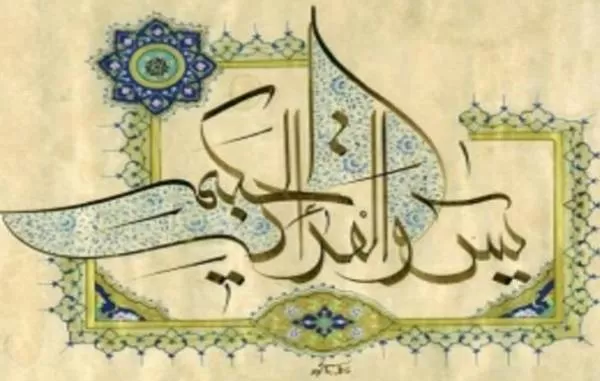 يس والقرآن الحكيم